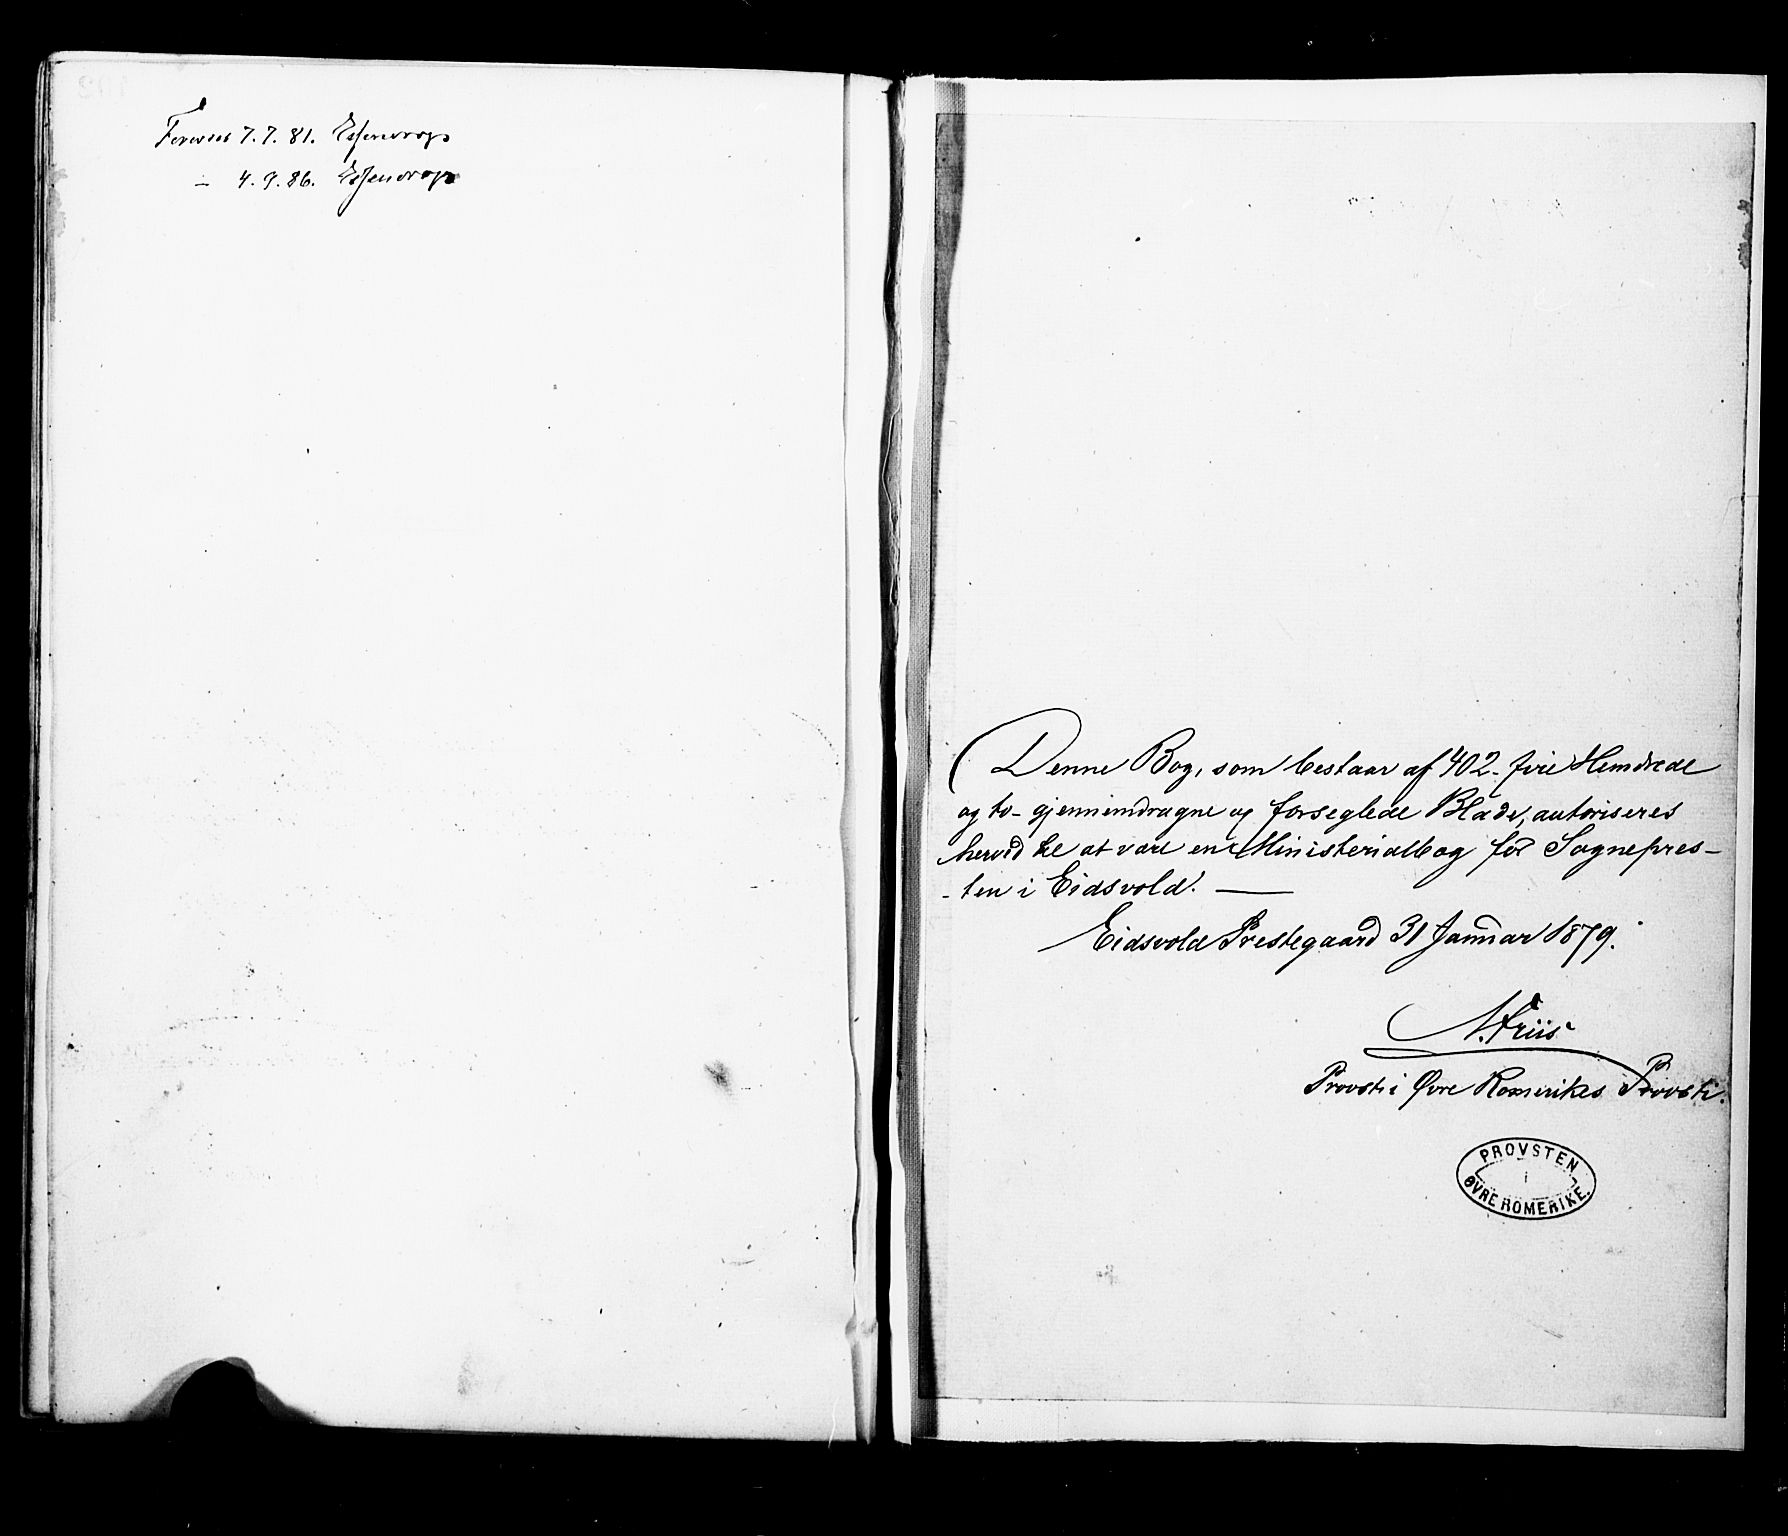 Forevist 7.7.81. Essendrop
– 4.9.86. Essendrop
Denne Bog, som bestaar af 402 - fire Hundrede
og to - gjennemdragne og forseglede Blade, autoriseres
herved til at være en Ministerialbog for Sognepres-
-ten i Eidsvold. —
Eidsvold Prestegaard 31 Januar 1879.
N. Friis
Provst i Øvre Romerikes Provsti.
PROVSTEN
i
ØVRE ROMERIKE.